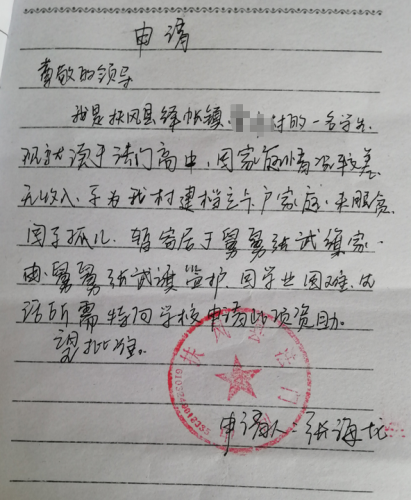 申请
尊敬的领导
我是扶风县绛帐镇 村的一名学生.
现就读于法门高中，因家庭情况较差
无收入，予为我村建档立卡户家庭.
因予孤儿.暂寄居于舅舅张武 家.
由.舅舅张武 监护.因学业困难.生
活所需特向学校申请此项资助。
望批准。
扶风县法门
申请人：张海龙